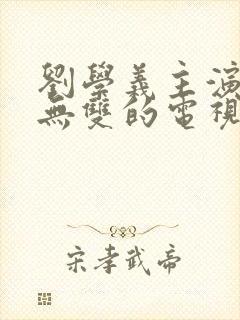 劉學義主演
無雙的電視
宋孝武帝